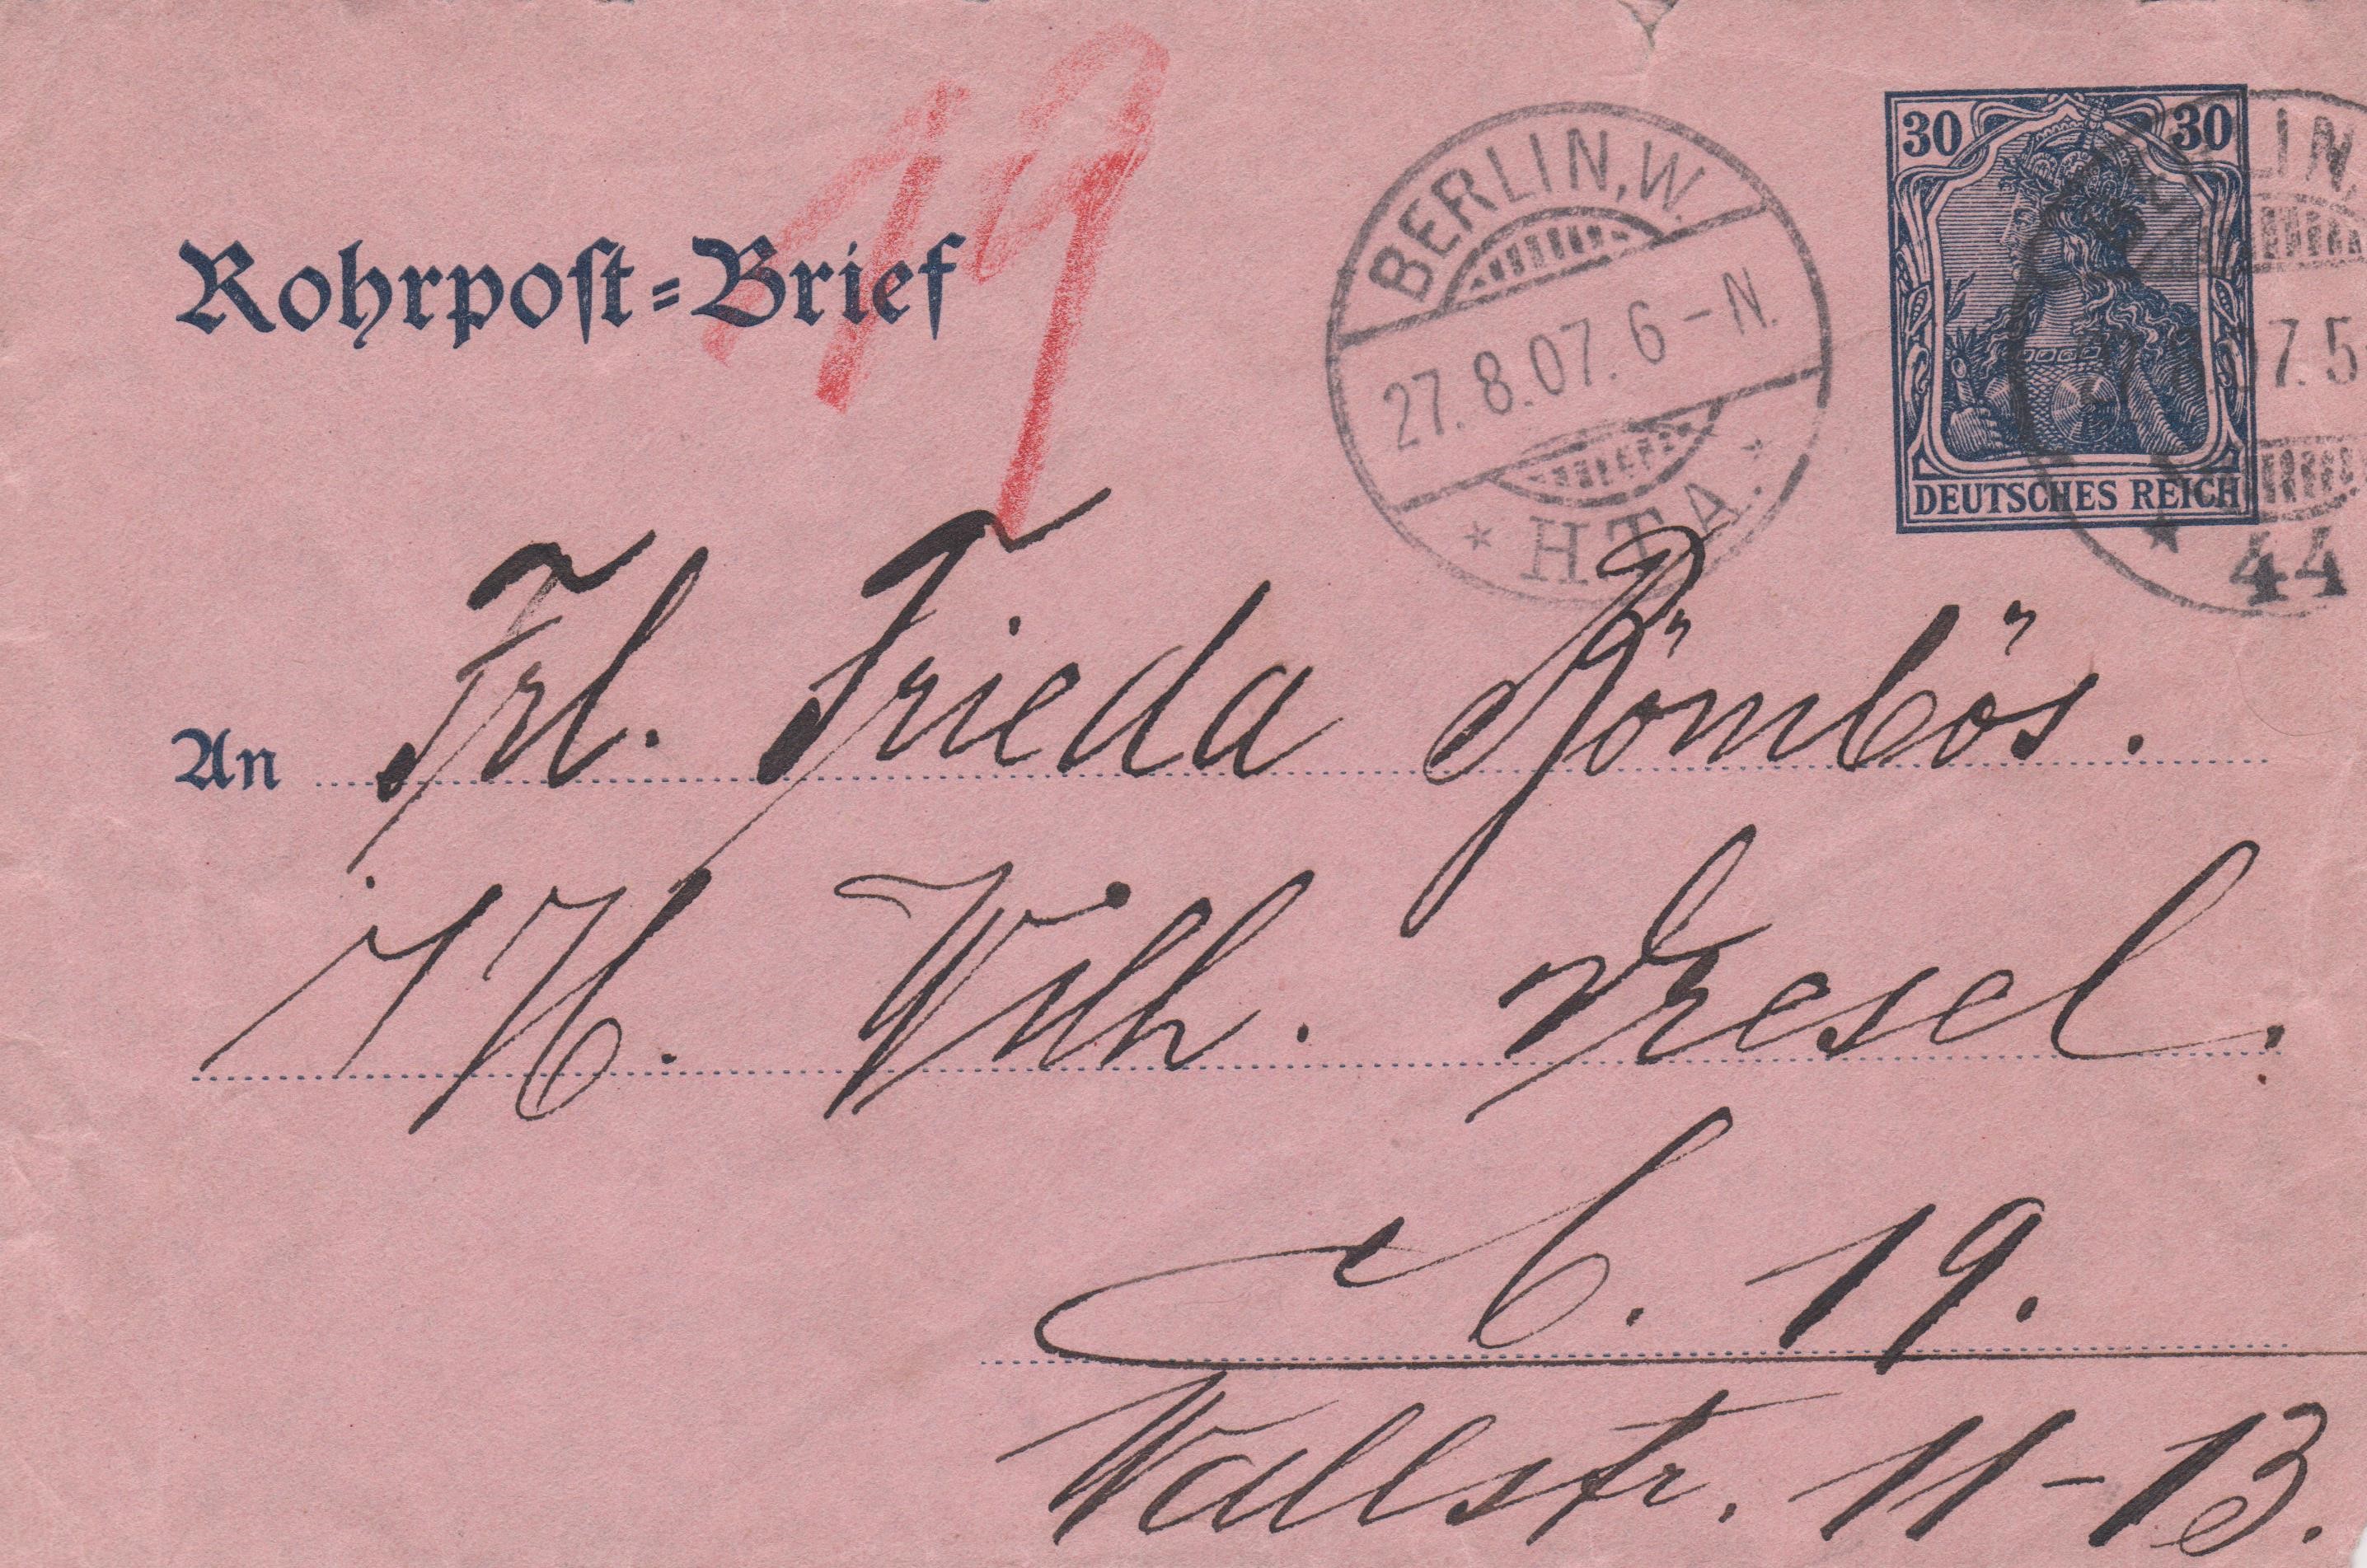 19
Rohrpost-Brief
BERLIN, W.
27.8.07. 6-N.
* H.T.A. *
30 30
DEUTSCHES REICH
LIN,
7.5
* 44
An Frl. Frieda Römbös.
i/H. Wilh. Vresel.
C. 19.
Wallstr. 11-13.